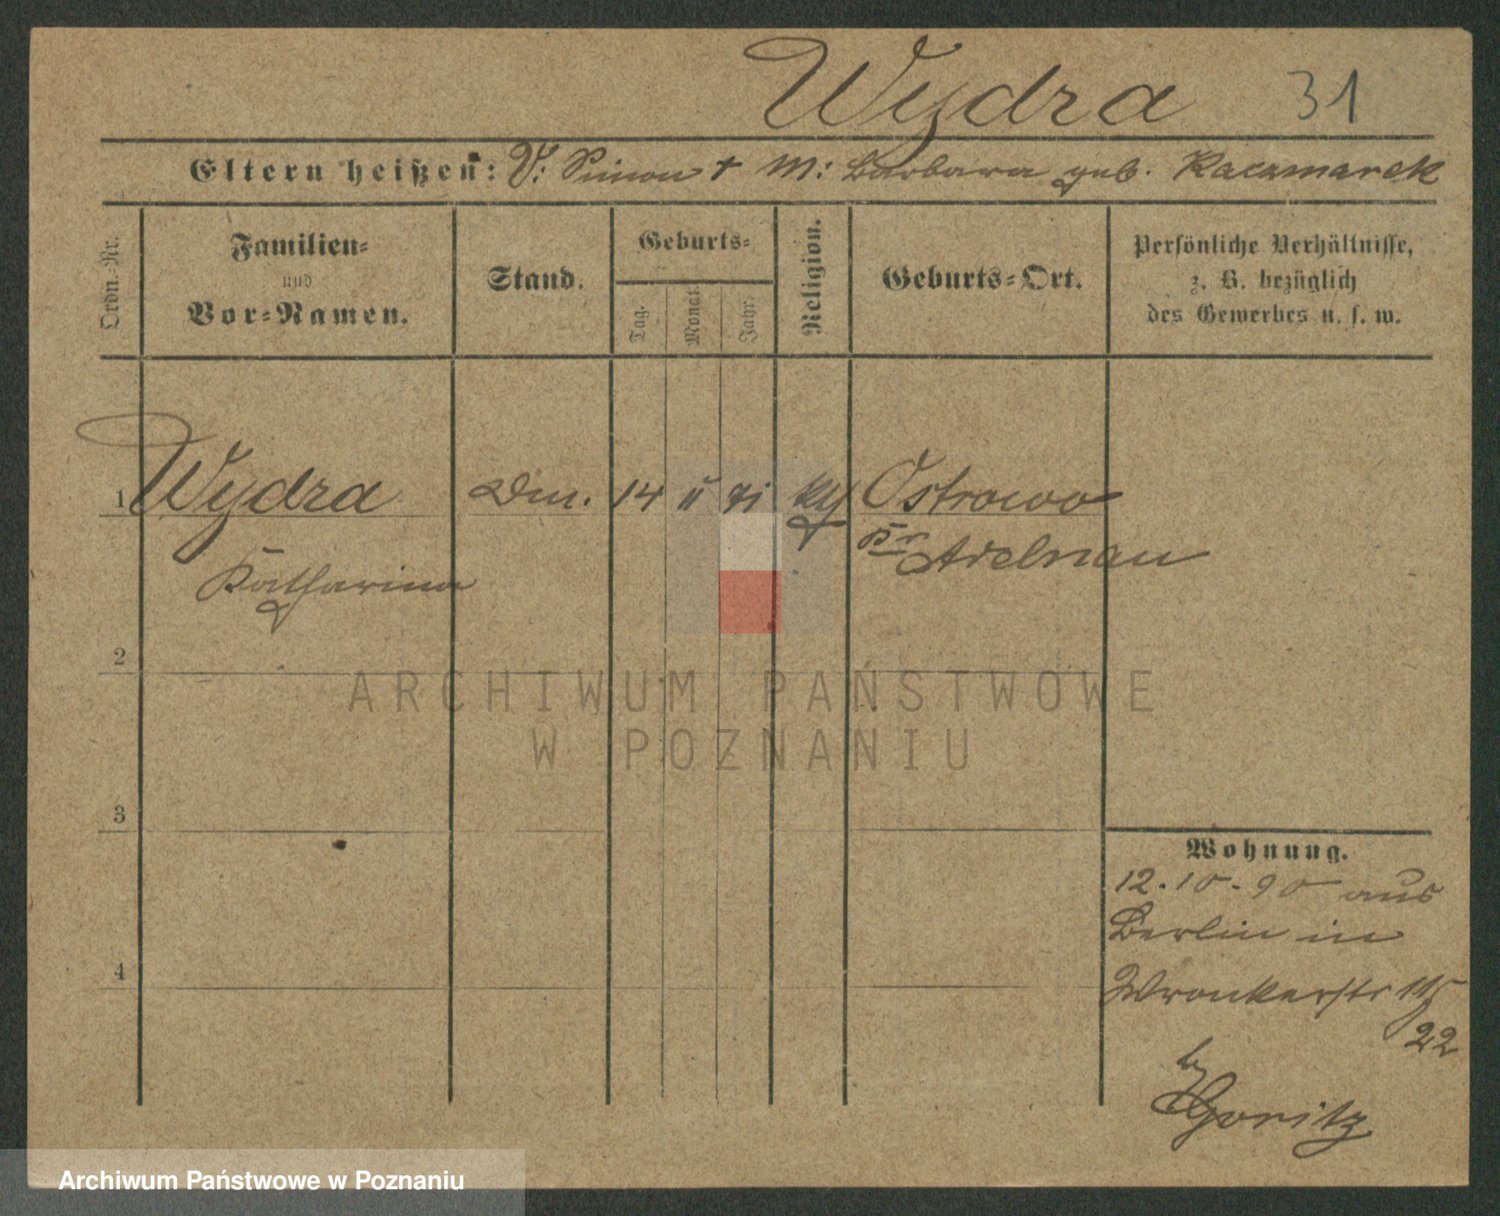 Wydra 31
Eltern heißen: V: Simon † M: Barbara geb. Kaczmarek
Ordn.-Nr.
Familien-
und
Vor-Namen.
Stand.
Geburts-
Tag.
Monat.
Jahr.
Religion.
Geburts-Ort.
Persönliche Verhältnisse,
z. B. bezüglich
des Gewerbes u. s. w.
1 Wydra 14 11 71 Ostrowo
Katharina Kr Adelnau
2
ARCHIWUM PAŃSTWOWE
W POZNANIU
3
Wohnung.
12.10.90 aus
Berlin in
4
Wronkerstr
22
b/ Goritz
Archiwum Państwowe w Poznaniu